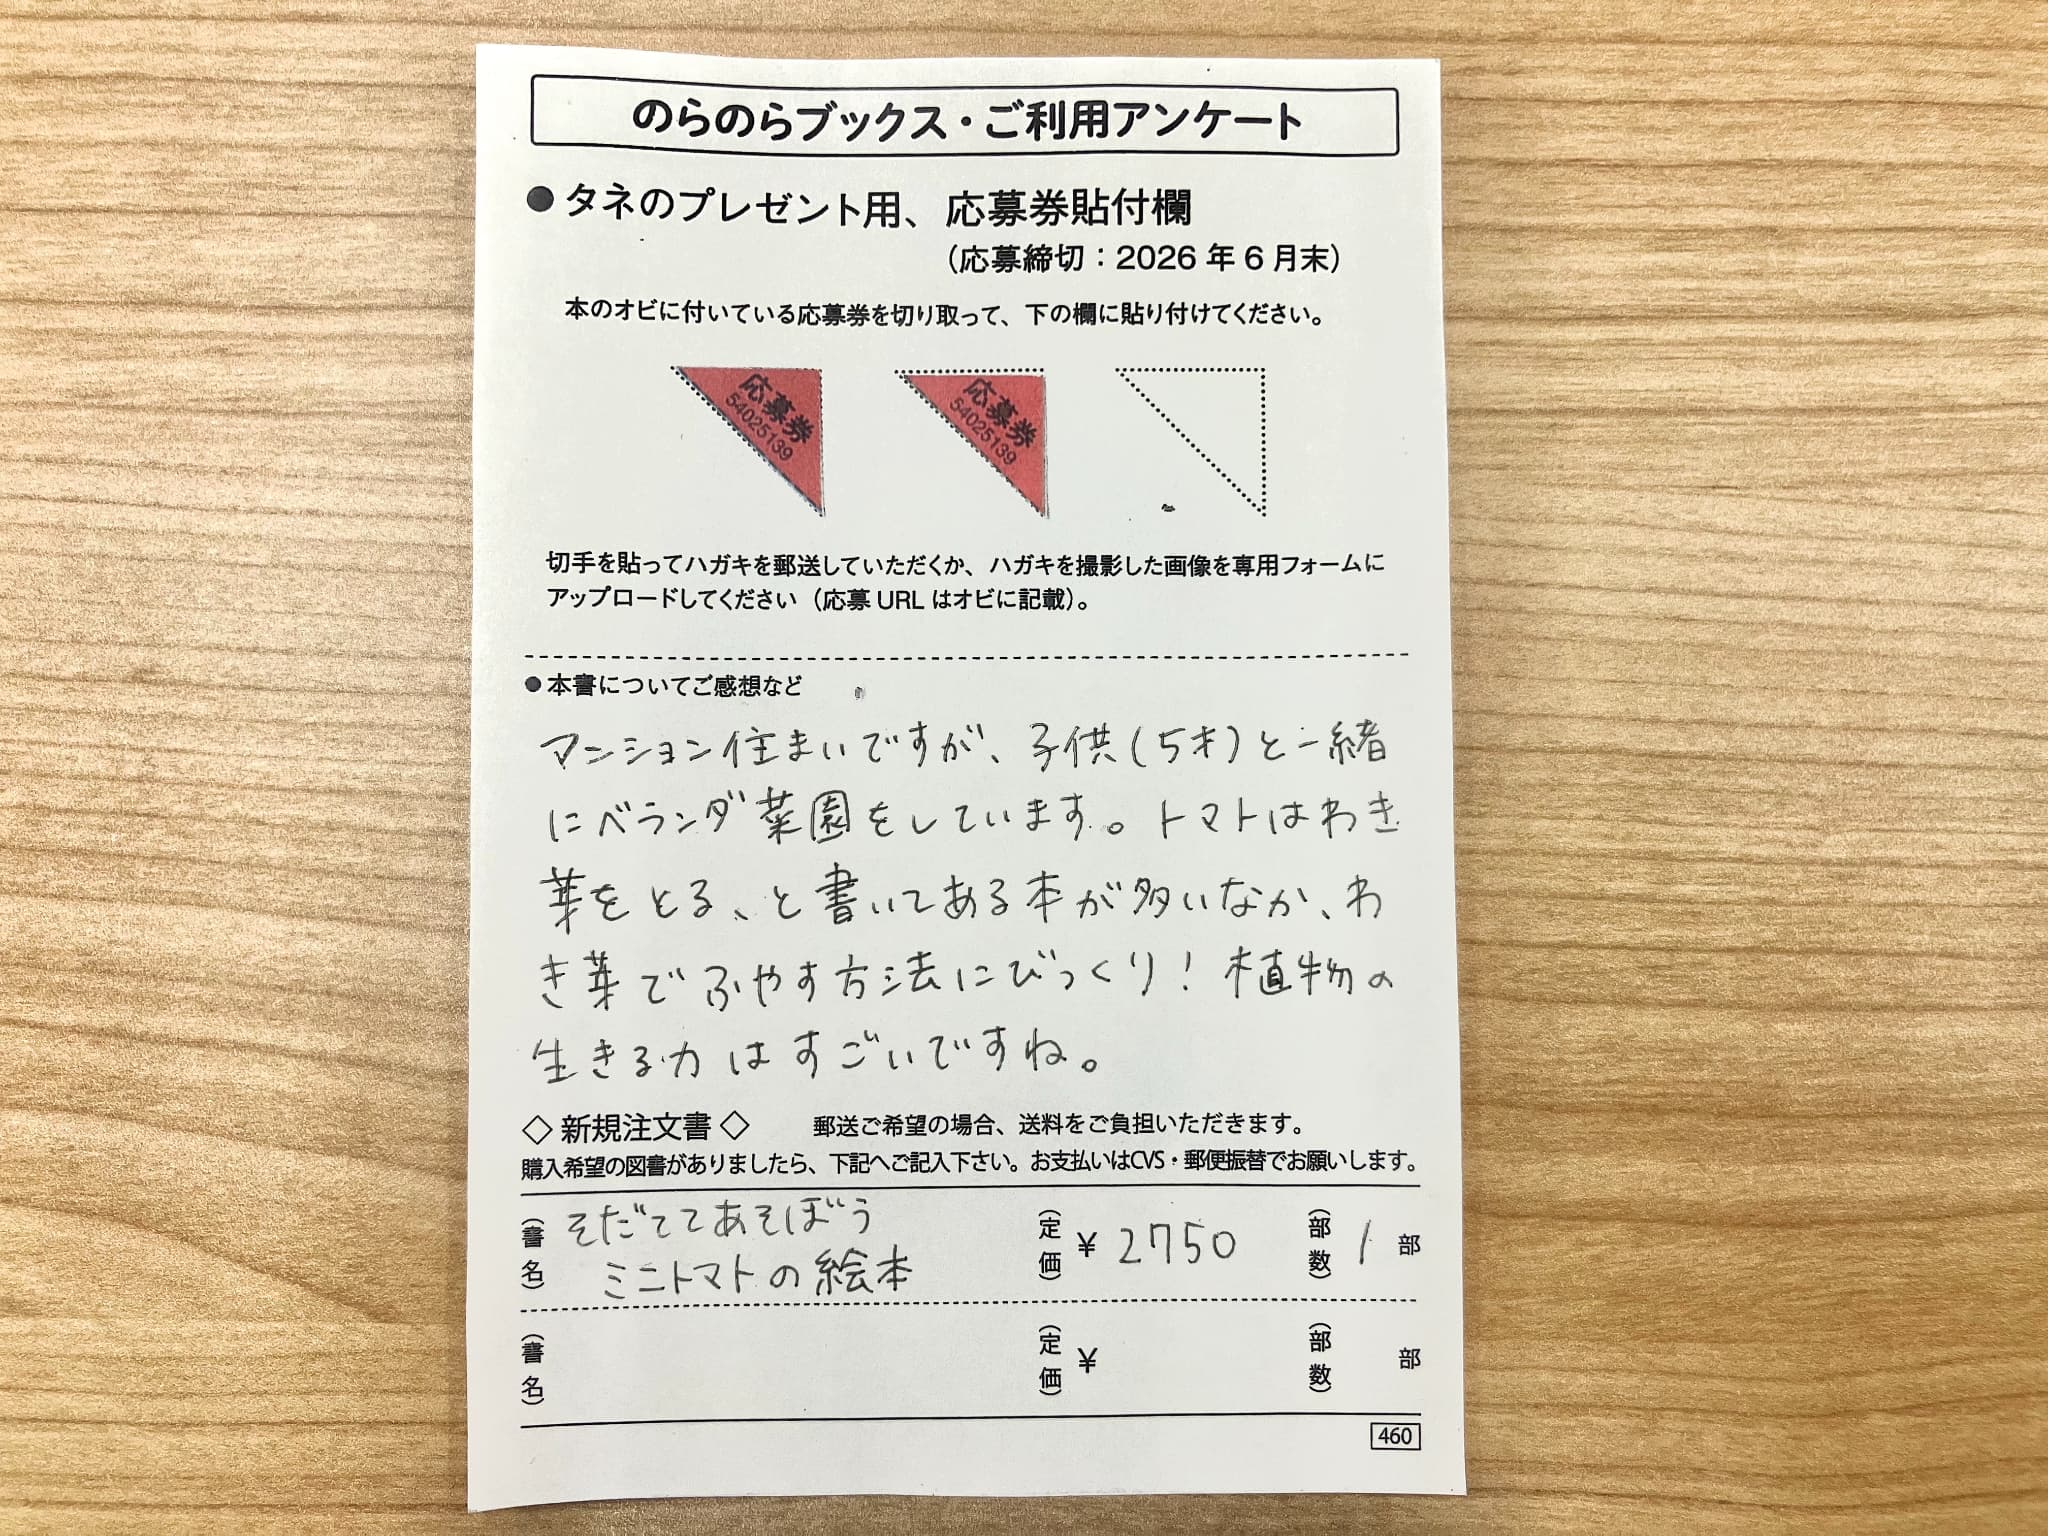 のらのらブックス・ご利用アンケート
●タネのプレゼント用、応募券貼付欄
（応募締切：2026年6月末）
本のオビに付いている応募券を切り取って、下の欄に貼り付けてください。
応募券
54025139
応募券
54025139
切手を貼ってハガキを郵送していただくか、ハガキを撮影した画像を専用フォームに
アップロードしてください（応募URLはオビに記載）。
●本書についてご感想など
マンション住まいですが、子供(5才)と一緒
にベランダ菜園をしています。トマトはわき
芽をとる、と書いてある本が多いなか、わ
き芽でふやす方法にびっくり！植物の
生きる力はすごいですね。
◇新規注文書◇ 郵送ご希望の場合、送料をご負担いただきます。
購入希望の図書がありましたら、下記へご記入下さい。お支払いはCVS・郵便振替でお願いします。
（書名） そだててあそぼう
ミニトマトの絵本 （定価） ¥ 2750 （部数） 1 部
（書名） （定価） ¥ （部数） 部
460